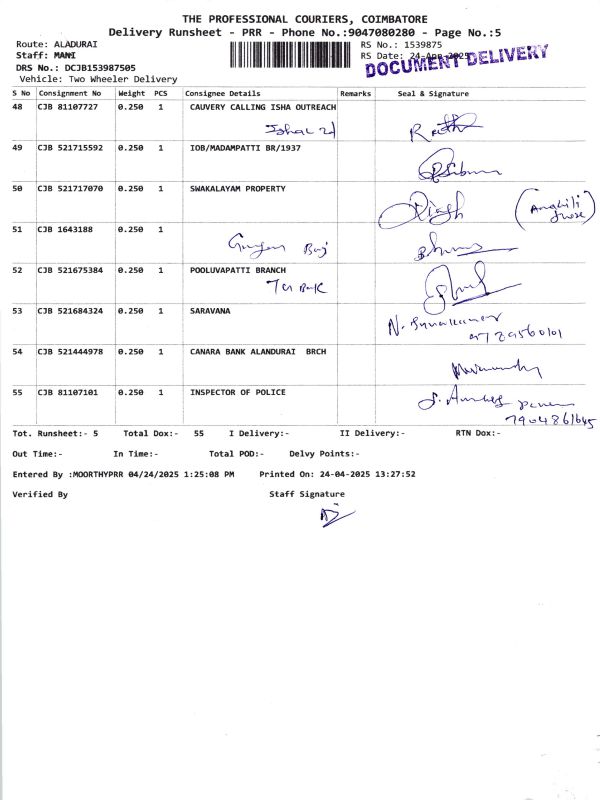 THE PROFESSIONAL COURIERS, COIMBATORE
Delivery Runsheet - PRR - Phone No.:9047080280 - Page No.:5
Route: ALADURAI RS No.: 1539875
Staff: MANI RS Date: 24-Apr-2025
DOCUMENT DELIVERY
DRS No.: DCJB153987505
Vehicle: Two Wheeler Delivery
S No Consignment No Weight PCS Consignee Details Remarks Seal & Signature
48 CJB 81107727 0.250 1 CAUVERY CALLING ISHA OUTREACH
49 CJB 521715592 0.250 1 IOB/MADAMPATTI BR/1937
50 CJB 521717070 0.250 1 SWAKALAYAM PROPERTY
51 CJB 1643188 0.250 1
52 CJB 521675384 0.250 1 POOLUVAPATTI BRANCH
53 CJB 521684324 0.250 1 SARAVANA
54 CJB 521444978 0.250 1 CANARA BANK ALANDURAI BRCH
55 CJB 81107101 0.250 1 INSPECTOR OF POLICE
7904861645
Tot. Runsheet:- 5 Total Dox:- 55 I Delivery:- II Delivery:- RTN Dox:-
Out Time:- In Time:- Total POD:- Delvy Points:-
Entered By :MOORTHYPRR 04/24/2025 1:25:08 PM Printed On: 24-04-2025 13:27:52
Verified By Staff Signature